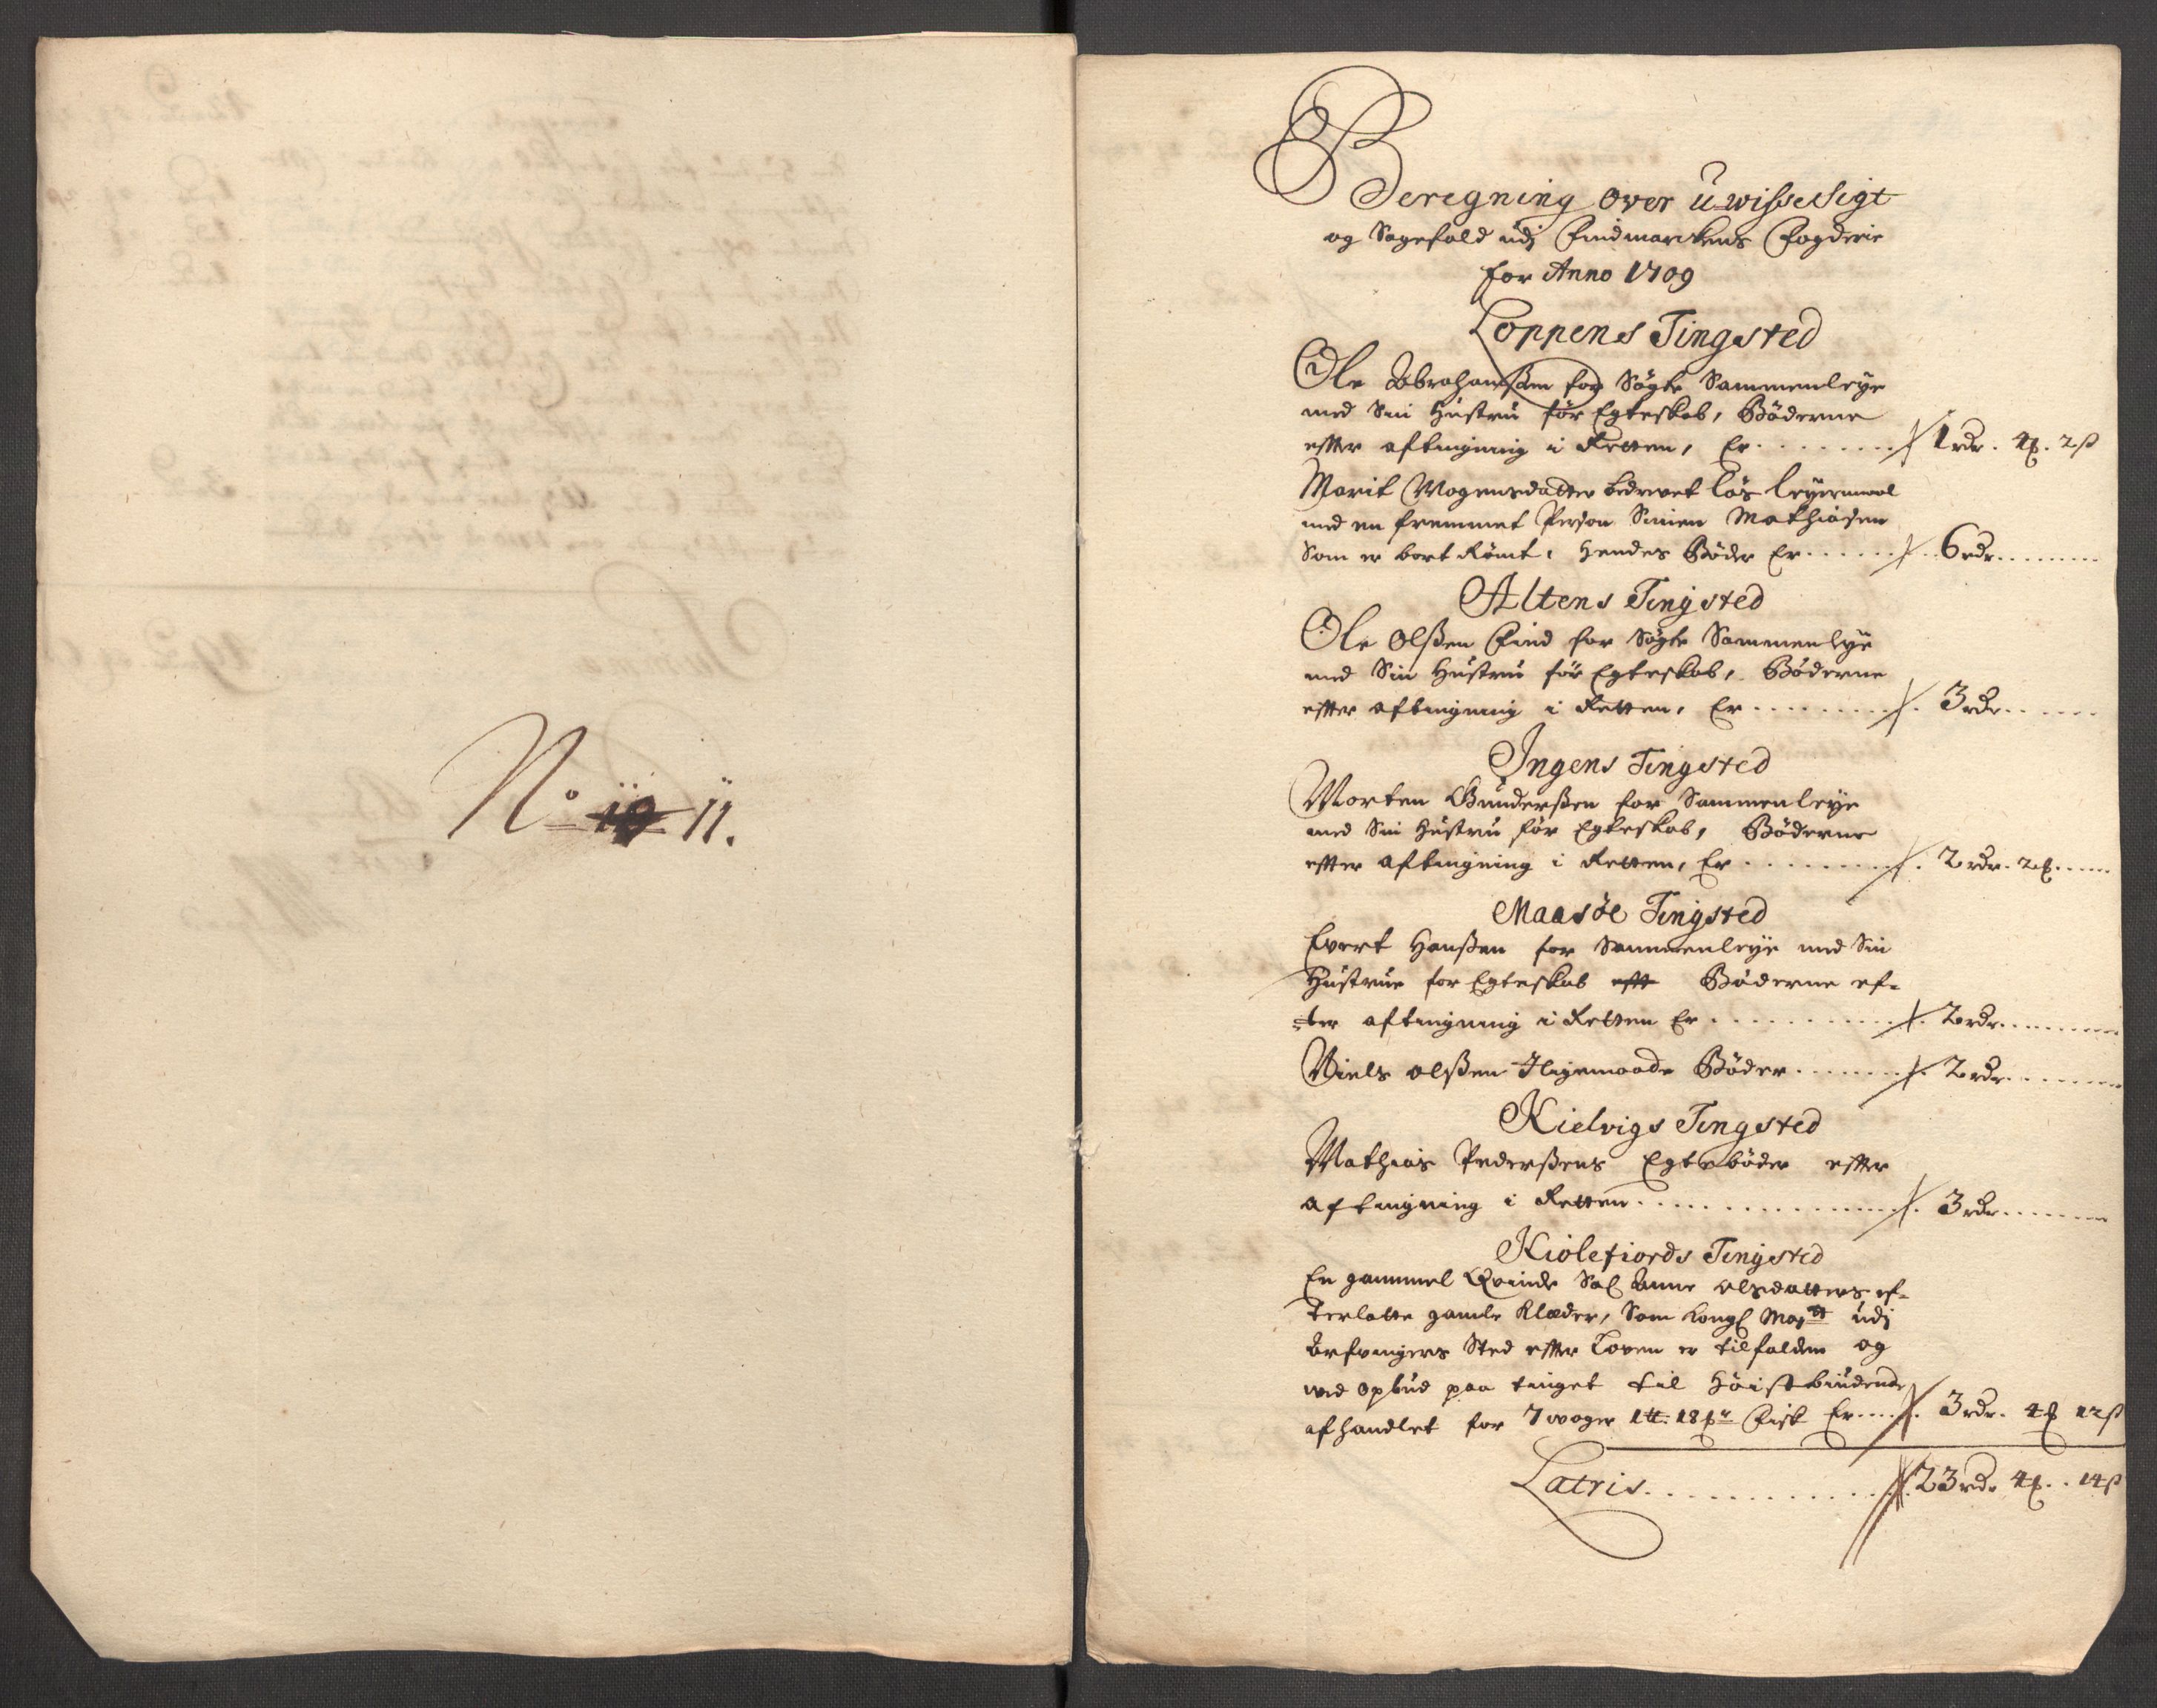 No 10 11.
Beregning over uwisse Sigt
og Sagefald udj Findmarckens Fogderie
for Anno 1709
Loppens Tingsted
Ole Abrahamssen for Søgte Sammenleye
med Sin Hustru før Egteskab, Bøderne
efter aftingning i Retten, Er . . . . . . . 1 rdr. 4 ℔. 2 ß
Marit Mogensdatter bedrevet løs leyermaal
med en fremmet Person Simen Mathiasen
Som er bort Rømt, hendes Bøder Er . . . . . . 6 rdr. . . . . .
Altens Tingsted
Ole Olssen Find for Søgte Sammenleye
med Sin Hustru før Egteskab, Bøderne
efter aftingning i Retten, Er . . . . . . . . 3 rdr. . . . . .
Ingens Tingsted
Morten Gunderssen for Sammenleye
med Sin Hustru før Egteskab, Bøderne
efter aftingning i Retten, Er . . . . . . . . 2 rdr. 2 ℔. . . . .
Maasøe Tingsted
Evert Hanssen for Sammenleye med Sin
Hustrue for Egteskab eftt Bøderne ef-
-ter aftingning i Retten Er . . . . . . . . . . 2 rdr. . . . . .
Niels Olssen Iligemaade Bøder . . . . . . . 2 rdr. . . . . .
Kielvigs Tingsted
Mathias Pederssens Egtebøder efter
aftingning i Retten . . . . . . . . . . . . . 3 rdr. . . . . .
Kiølefiords Tingsted
En gammel Qvinde Sal Anne Olsdatters ef-
terlatte gamle Klæder, Som Kongl Maytt udj
Arfvingers Sted efter Loven er tilfalden og
ved opbud paa tinget til Høistbiudende
afhandlet for 7 woger 1 tt. 18 Fisk Er . . . . 3 rdr. 4 ℔ 12 ß
Latris . . . . . . . . . . . . 23 rdr 4 ℔. . 14 ß